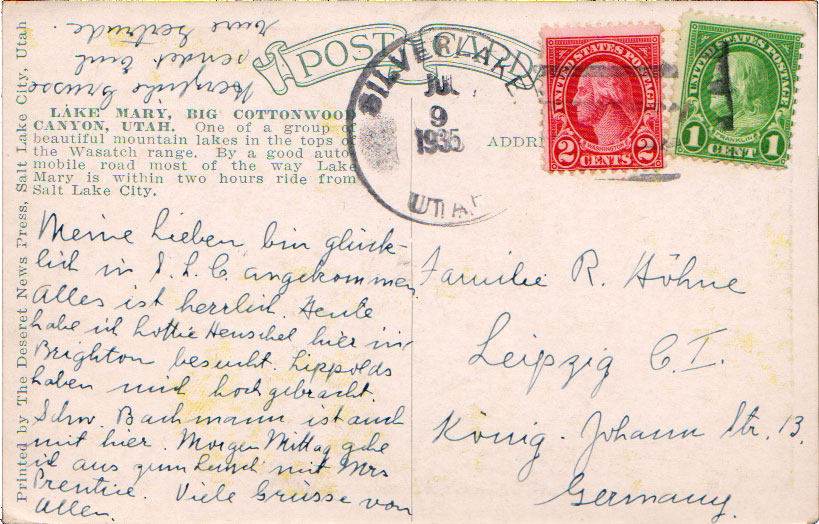 POST CARD
SILVER LAKE
JUL
9
1935
UTAH
UNITED STATES POSTAGE
WASHINGTON
2 CENTS 2
UNITED STATES POSTAGE
FRANKLIN
1 CENT 1
Herzliche Grüsse
sendet Euch
Eure Gertrude
LAKE MARY, BIG COTTONWOOD
CANYON, UTAH. One of a group of
beautiful mountain lakes in the tops of
the Wasatch range. By a good auto-
mobile road most of the way Lake
Mary is within two hours ride from
Salt Lake City.
ADDRE
Meine Lieben bin glück-
lich in S. L. C angekommen.
Alles ist herrlich. Heute
habe ich Lottie Henschel hier in
Brighton besucht. Lippolds
haben mich hochgebracht.
Schw. Bachmann ist auch
mit hier. Morgen Mittag gehe
ich aus zum Lunch mit Mrs
Prentice. Viele Grüsse von
Allen.
Familie R. Höhne
Leipzig C. I.
König-Johann Str. 13.
Germany.
Printed by The Deseret News Press, Salt Lake City, Utah